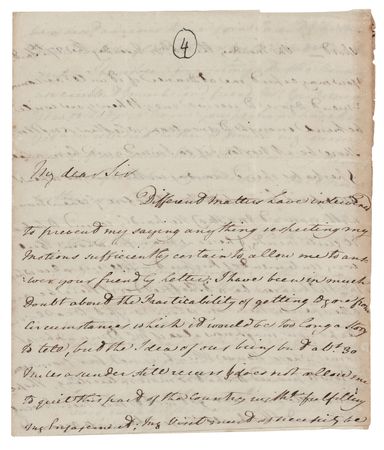 4
My dear Sir
Different matters have intended
to prevend my saying anything respecting my
Motions sufficiently certain to allow me to ans-
wer your friendly letter; I have been in much
Doubt about the Practicability of getting
Circumstances which it would be too long a story
to tell, but the Idea of our being but abt. 30
Miles asunder still recurs & does not allow me
to quit this part of the Country witht. fulfilling
my Engagement; my Visit must of necessity be